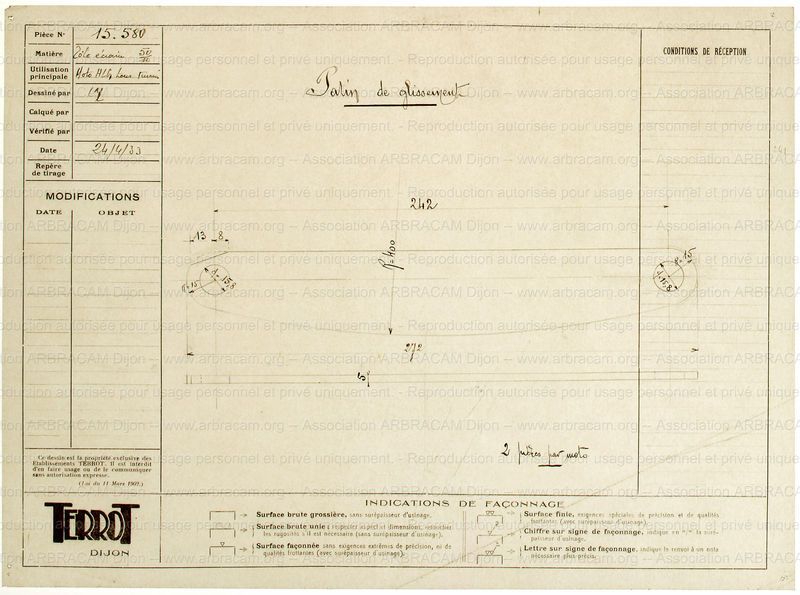 Pièce N° 15.580
Matière Tôle 50
Utilisation principale Moto
Dessiné par
Calqué par
Vérifié par
Date 24/4/33
Repère de tirage
MODIFICATIONS
DATE OBJET
Patin de glissement
CONDITIONS DE RÉCEPTION
242
13 8
R=400
R=15
d=15,8
R=15
d=15,8
272
5
2 pièces par moto
Ce dessin est la propriété exclusive des
Etablissements TERROT. Il est interdit
d'en faire usage ou de le communiquer
sans autorisation expresse.
(Loi du 11 Mars 1902.)
TERROT
DIJON
INDICATIONS DE FAÇONNAGE
Surface brute grossière, sans surépaisseur d'usinage.
Surface brute unie; respecter aspect et dimensions, retoucher
les rugosités s'il est nécessaire (sans surépaisseur d'usinage).
Surface façonnée sans exigences extrêmes de précision, ni de
qualités frottantes (avec surépaisseur d'usinage).
Surface finie, exigences spéciales de précision et de qualités
frottantes (avec surépaisseur d'usinage).
Chiffre sur signe de façonnage, indique en "/" la suré-
paisseur d'usinage.
Lettre sur signe de façonnage, indique le renvoi à une nota
nécessaire plus précis.
www.arbracam.org – Association ARBRACAM Dijon – www.arbracam.org – Association ARBRACAM Dijon
Reproduction autorisée pour usage personnel et privé uniquement.